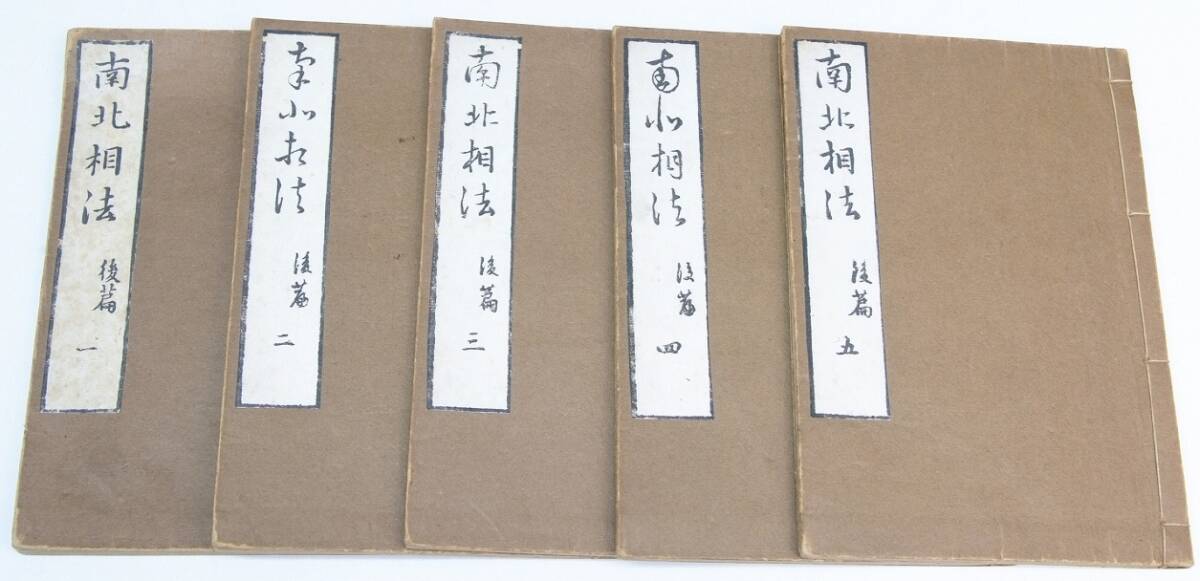 南北相法
後篇
一
南北相法
後篇
二
南北相法
後篇
三
南北相法
後篇
四
南北相法
後篇
五